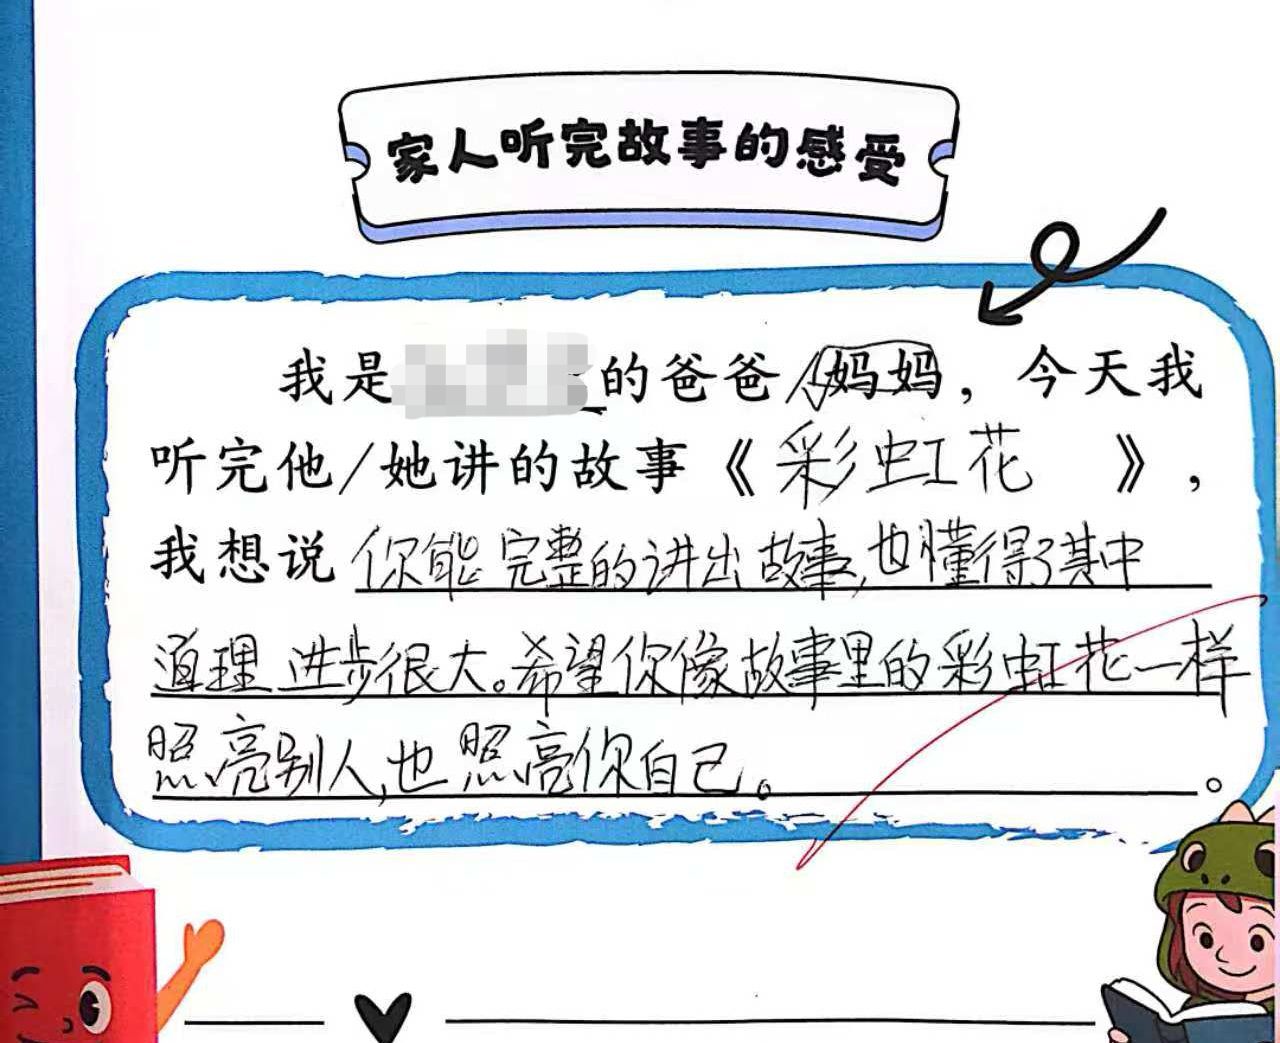 家人听完故事的感受
我是的爸爸/妈妈，今天我
听完他/她讲的故事《彩虹花》，
我想说你能完整的讲出故事,也懂得了其中
道理 进步很大。希望你像故事里的彩虹花一样
照亮别人,也照亮你自己。。